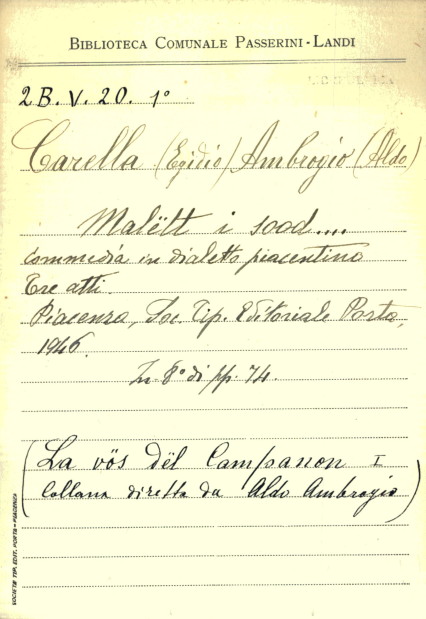 BIBLIOTECA COMUNALE PASSERINI-LANDI
2B.V.20.1°
Carella (Egidio) Ambrogio (Aldo)
Malëtt i sood....
commedia in dialetto piacentino
Tre atti.
Piacenza, Soc. Tip. Editoriale Porta,
1946.
In 8° di pp. 74.
(La vös dël Campanon I
Collana diretta da Aldo Ambrogio)
SOCIETÀ TIP. EDIT. PORTA - PIACENZA